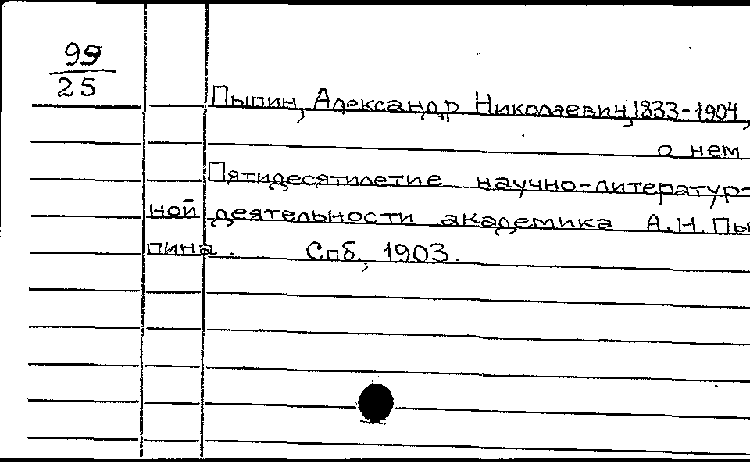 99
25
Пыпин, Александр Николаевич, 1833-1904,
о нем
Пятидесятилетие научно-литератур-
ной деятельности академика А.Н. Пы
пина. Спб, 1903.